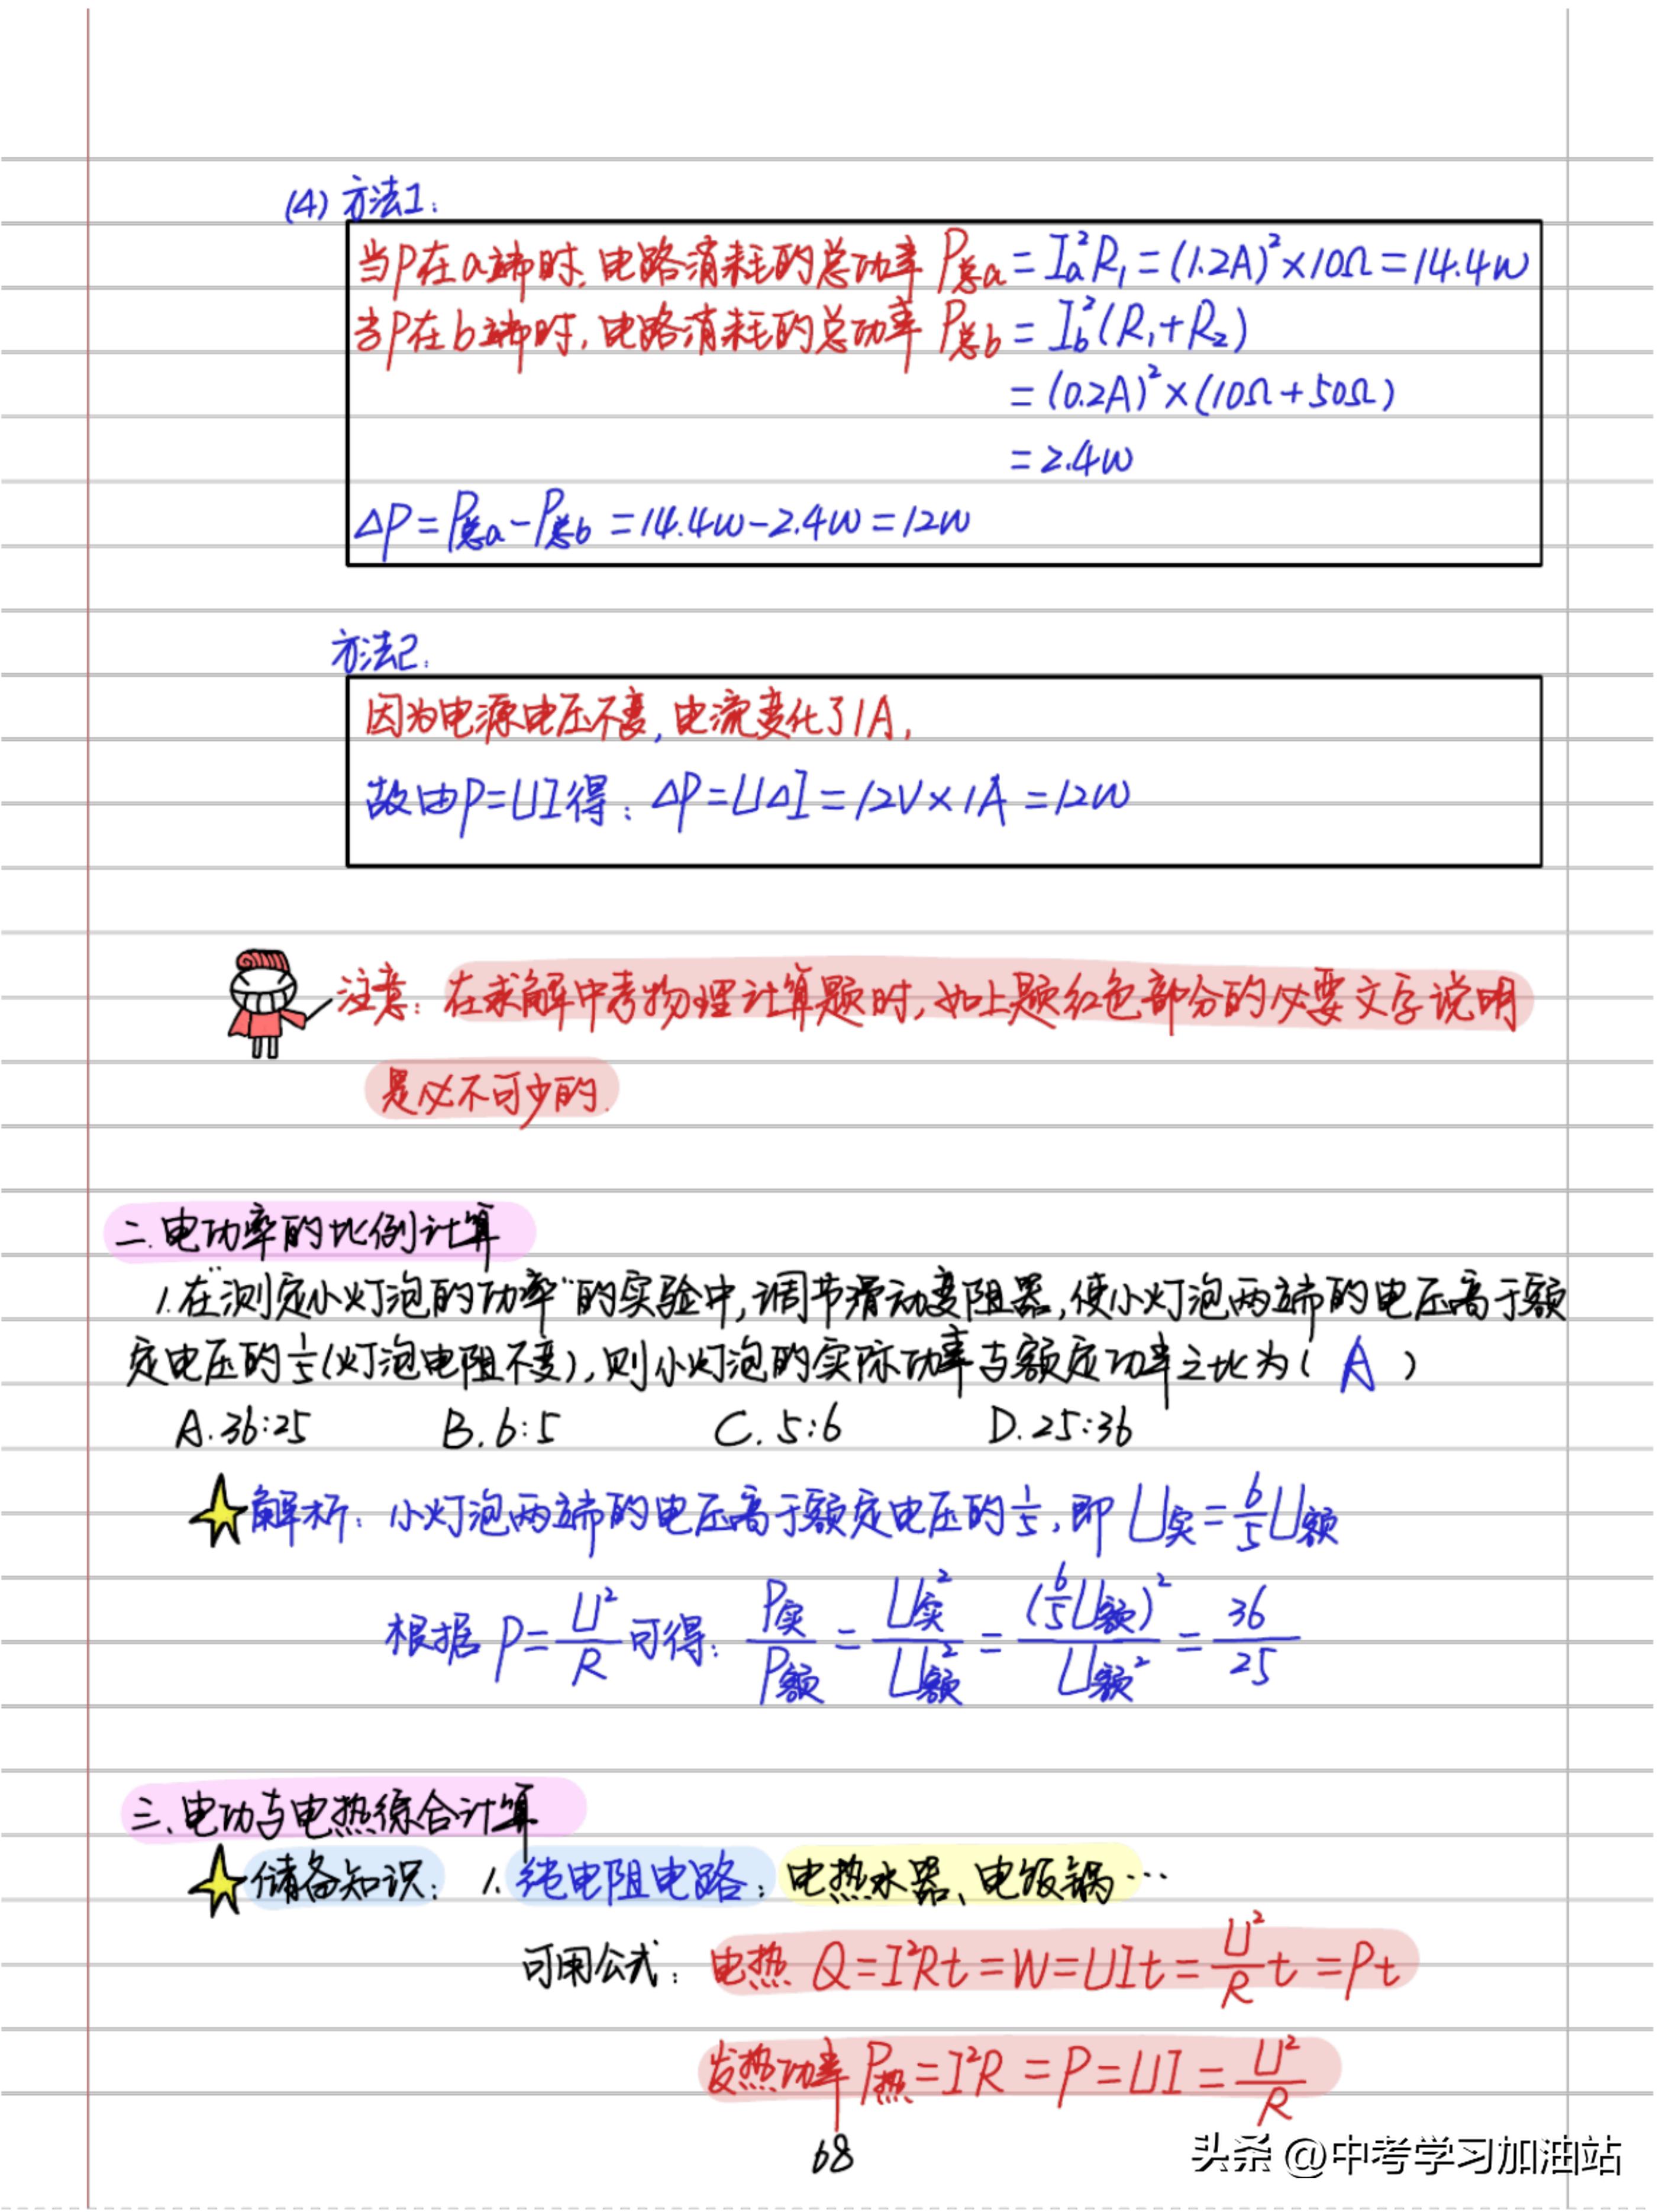 (4) 方法1:
当P在a端时,电路消耗的总功率 P总a = Ia²R₁ = (1.2A)²×10Ω = 14.4W
当P在b端时,电路消耗的总功率 P总b = Ib²(R₁+R₂)
= (0.2A)²×(10Ω+50Ω)
= 2.4W
△P = P总a - P总b = 14.4W - 2.4W = 12W
方法2:
因为电源电压不变,电流变化了1A,
故由P=UI得: △P=U△I = 12V×1A = 12W
注意: 在求解中考物理计算题时,如上题红色部分的必要文字说明
是必不可少的.
二.电功率的比例计算
1.在"测定小灯泡的功率"的实验中,调节滑动变阻器,使小灯泡两端的电压高于额
定电压的1/5(灯泡电阻不变),则小灯泡的实际功率与额定功率之比为( A )
A.36:25 B.6:5 C.5:6 D.25:36
解析: 小灯泡两端的电压高于额定电压的1/5,即 U实=6/5U额
根据 P=U²/R 可得: P实/P额 = U实²/U额² = (6/5U额)²/U额² = 36/25
三、电功与电热综合计算
储备知识: 1.纯电阻电路: 电热水器、电饭锅…
可用公式: 电热 Q=I²Rt=W=UIt=U²/R t=Pt
发热功率 P热=I²R=P=UI=U²/R
68
头条 @中考学习加油站